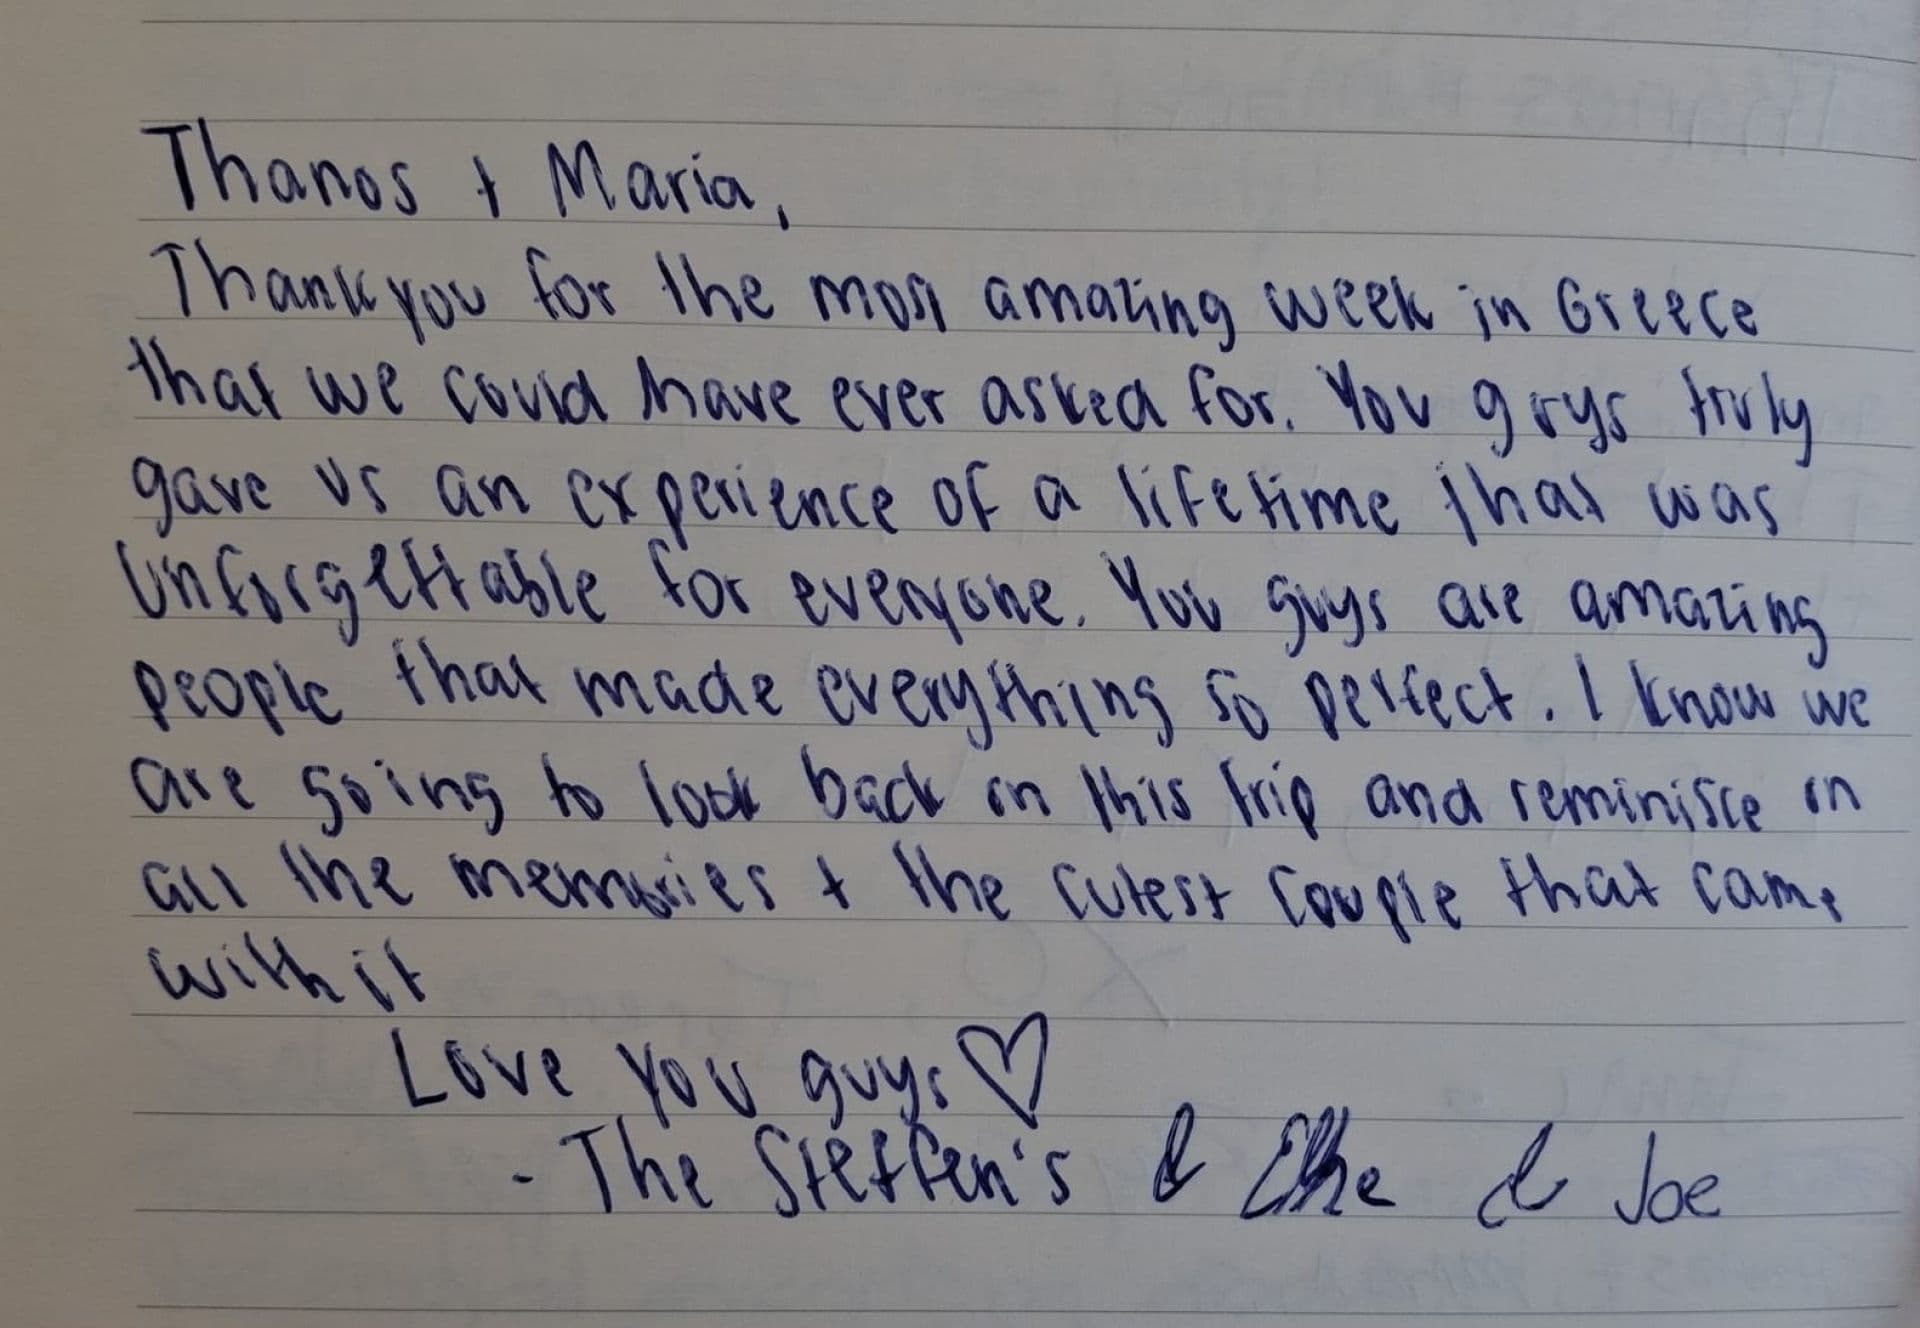 Thanos + Maria,
Thank you for the most amazing week in Greece
that we could have ever asked for. You guys truly
gave us an experience of a lifetime that was
unforgettable for everyone. You guys are amazing
people that made everything so perfect. I know we
are going to look back on this trip and reminisce on
all the memories + the cutest couple that came
with it
Love you guys ♡
- The Steffen's & & Joe